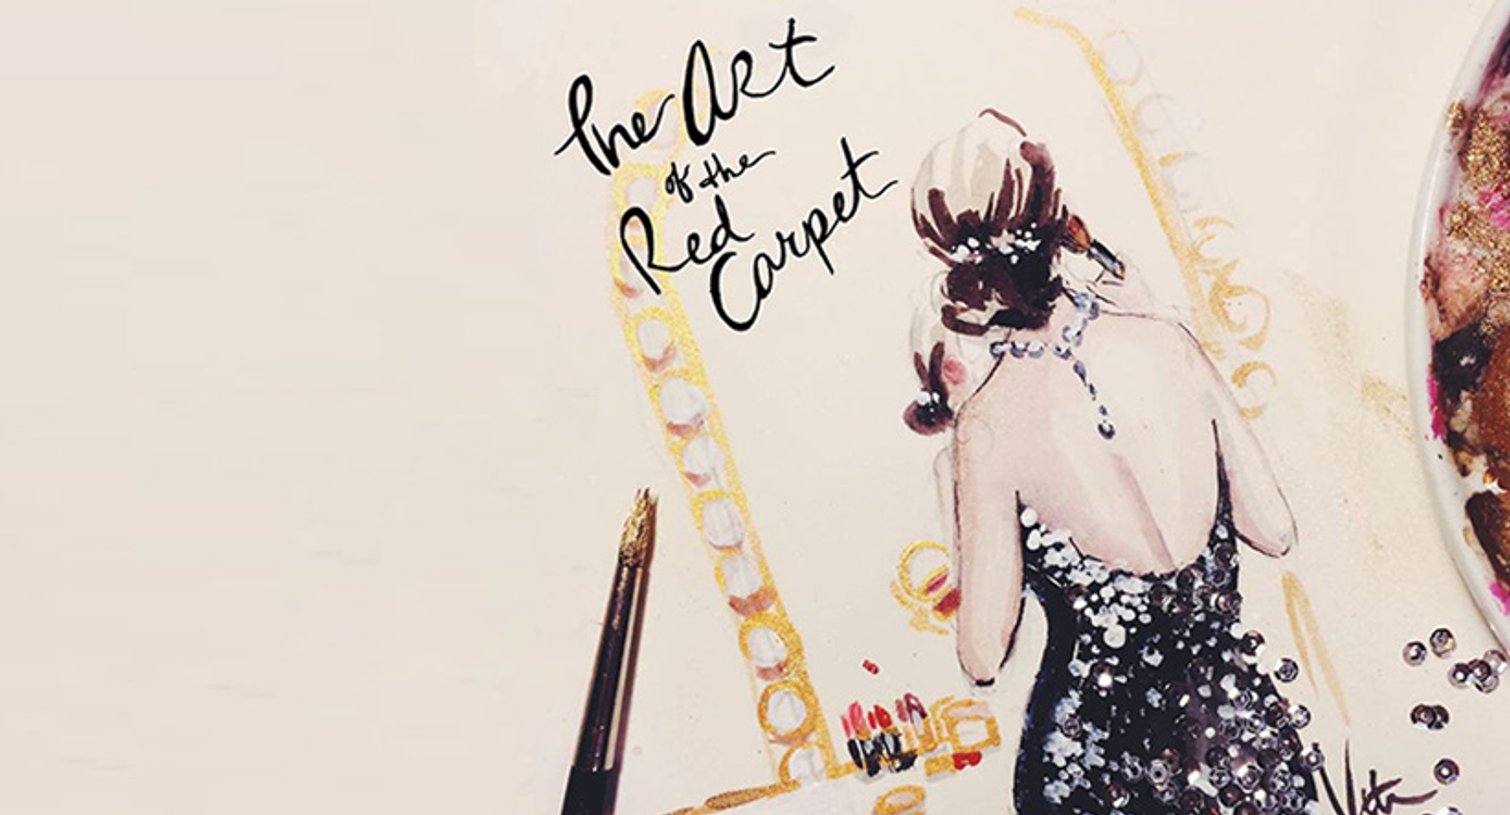 The Art
of the
Red
Carpet